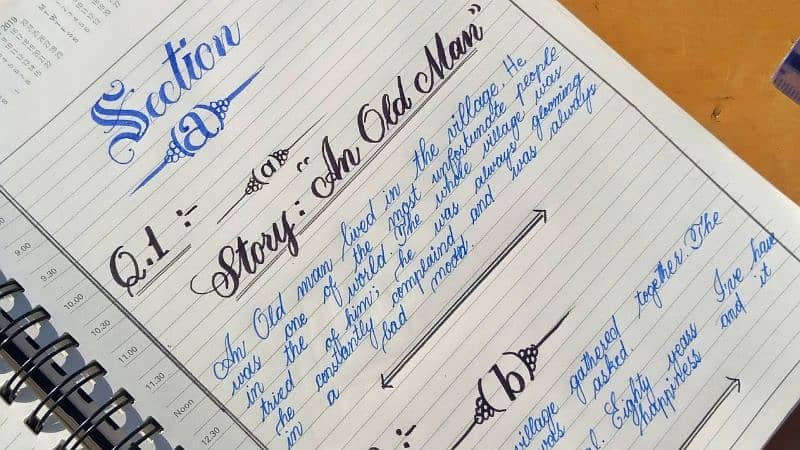 2019
Section
(a)
Q.1 :- (a)
Story: "An Old Man"
An Old man lived in the village. He
was one of the most unfortunate people
in the world. The whole village was
tried of him; he was always glooming
He constantly complaind and was always
in a bad mood.
(b)
village gathered together. The
was asked.
Eighty years I've have
happiness and it
9.00
9.30
10.00
10.30
11.00
11.30
Noon
12.30